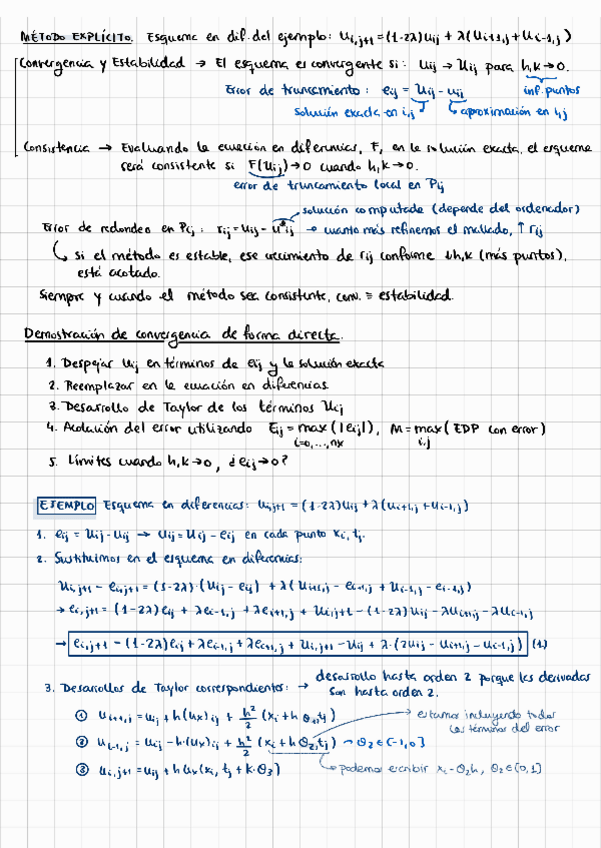 MÉTODO EXPLÍCITO. Esquema en dif. del ejemplo: u_{i,j+1} = (1-2λ)u_{ij} + λ(u_{i+1,j} + u_{i-1,j})
Convergencia y Estabilidad → El esquema es convergente si: u_{ij} → U_{ij} para h,k → 0.
Error de truncamiento: e_{ij} = U_{ij} - u_{ij} inf. puntos
solución exacta en i,j aproximación en i,j
Consistencia → Evaluando la ecuación en diferencias, F, en la solución exacta, el esquema
será consistente si F(U_{ij}) → 0 cuando h,k → 0.
error de truncamiento local en P_{ij}
solución computada (depende del ordenador)
Error de redondeo en P_{ij}: r_{ij} = u_{ij} - u*_{ij} → cuanto más refinemos el mallado, ↑ r_{ij}
si el método es estable, ese crecimiento de r_{ij} conforme ↓h,k (más puntos),
está acotado.
Siempre y cuando el método sea consistente, conv. ≡ estabilidad.
Demostración de convergencia de forma directa.
1. Despejar u_{ij} en términos de e_{ij} y la solución exacta
2. Reemplazar en la ecuación en diferencias
3. Desarrollo de Taylor de los términos U_{ij}
4. Acotación del error utilizando E_{ij} = max(|e_{ij}|), M = max(EDP con error)
i=0,...,nx i,j
5. Límites cuando h,k → 0, ¿e_{ij} → 0?
EJEMPLO Esquema en diferencias: u_{i,j+1} = (1-2λ)u_{ij} + λ(u_{i+1,j} + u_{i-1,j})
1. e_{ij} = U_{ij} - u_{ij} → u_{ij} = U_{ij} - e_{ij} en cada punto x_i, t_j.
2. Sustituimos en el esquema en diferencias:
U_{i,j+1} - e_{i,j+1} = (1-2λ)·(U_{ij} - e_{ij}) + λ(U_{i+1,j} - e_{i+1,j} + U_{i-1,j} - e_{i-1,j})
→ e_{i,j+1} = (1-2λ)e_{ij} + λe_{i-1,j} + λe_{i+1,j} + U_{i,j+1} - (1-2λ)U_{ij} - λU_{i+1,j} - λU_{i-1,j}
→ e_{i,j+1} = (1-2λ)e_{ij} + λe_{i-1,j} + λe_{i+1,j} + U_{i,j+1} - U_{ij} + λ·(2U_{ij} - U_{i+1,j} - U_{i-1,j}) (1)
3. Desarrollos de Taylor correspondientes: → desarrollo hasta orden 2 porque las derivadas
son hasta orden 2.
① U_{i+1,j} = U_{ij} + h(U_x)_{ij} + h²/2 (x_i + hθ_1, t_j) → estamos incluyendo todos
los términos del error
② U_{i-1,j} = U_{ij} - h·(U_x)_{ij} + h²/2 (x_i + hθ_2, t_j) → θ_2 ∈ (-1,0]
③ U_{i,j+1} = U_{ij} + k U_x(x_i, t_j + k·θ_3) podemos escribir x_i - θ_2h, θ_2 ∈ [0,1]